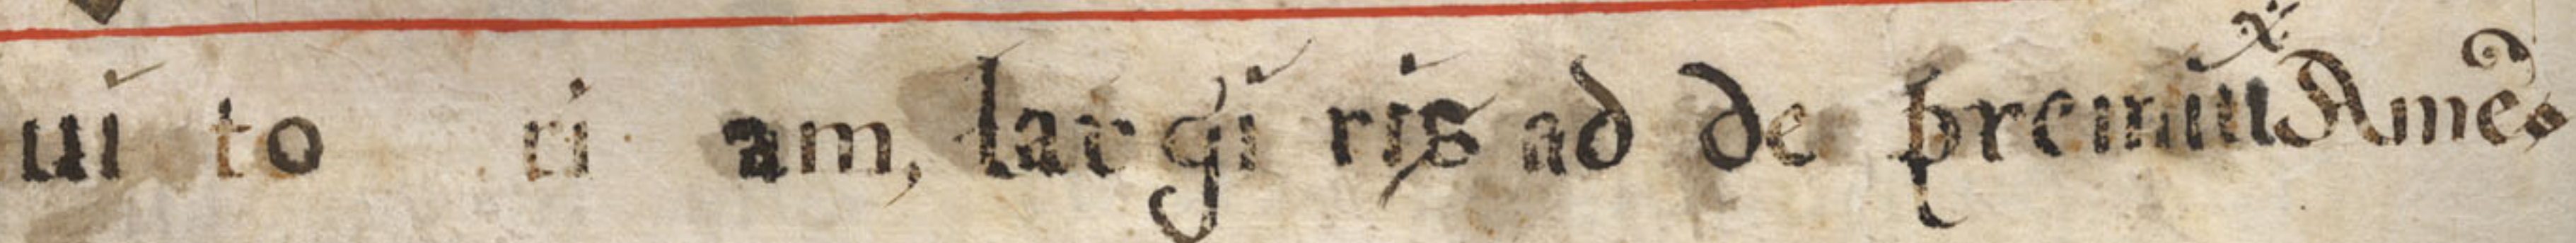 ui to ri am, lar gi ris ad de premiũ Amẽ.